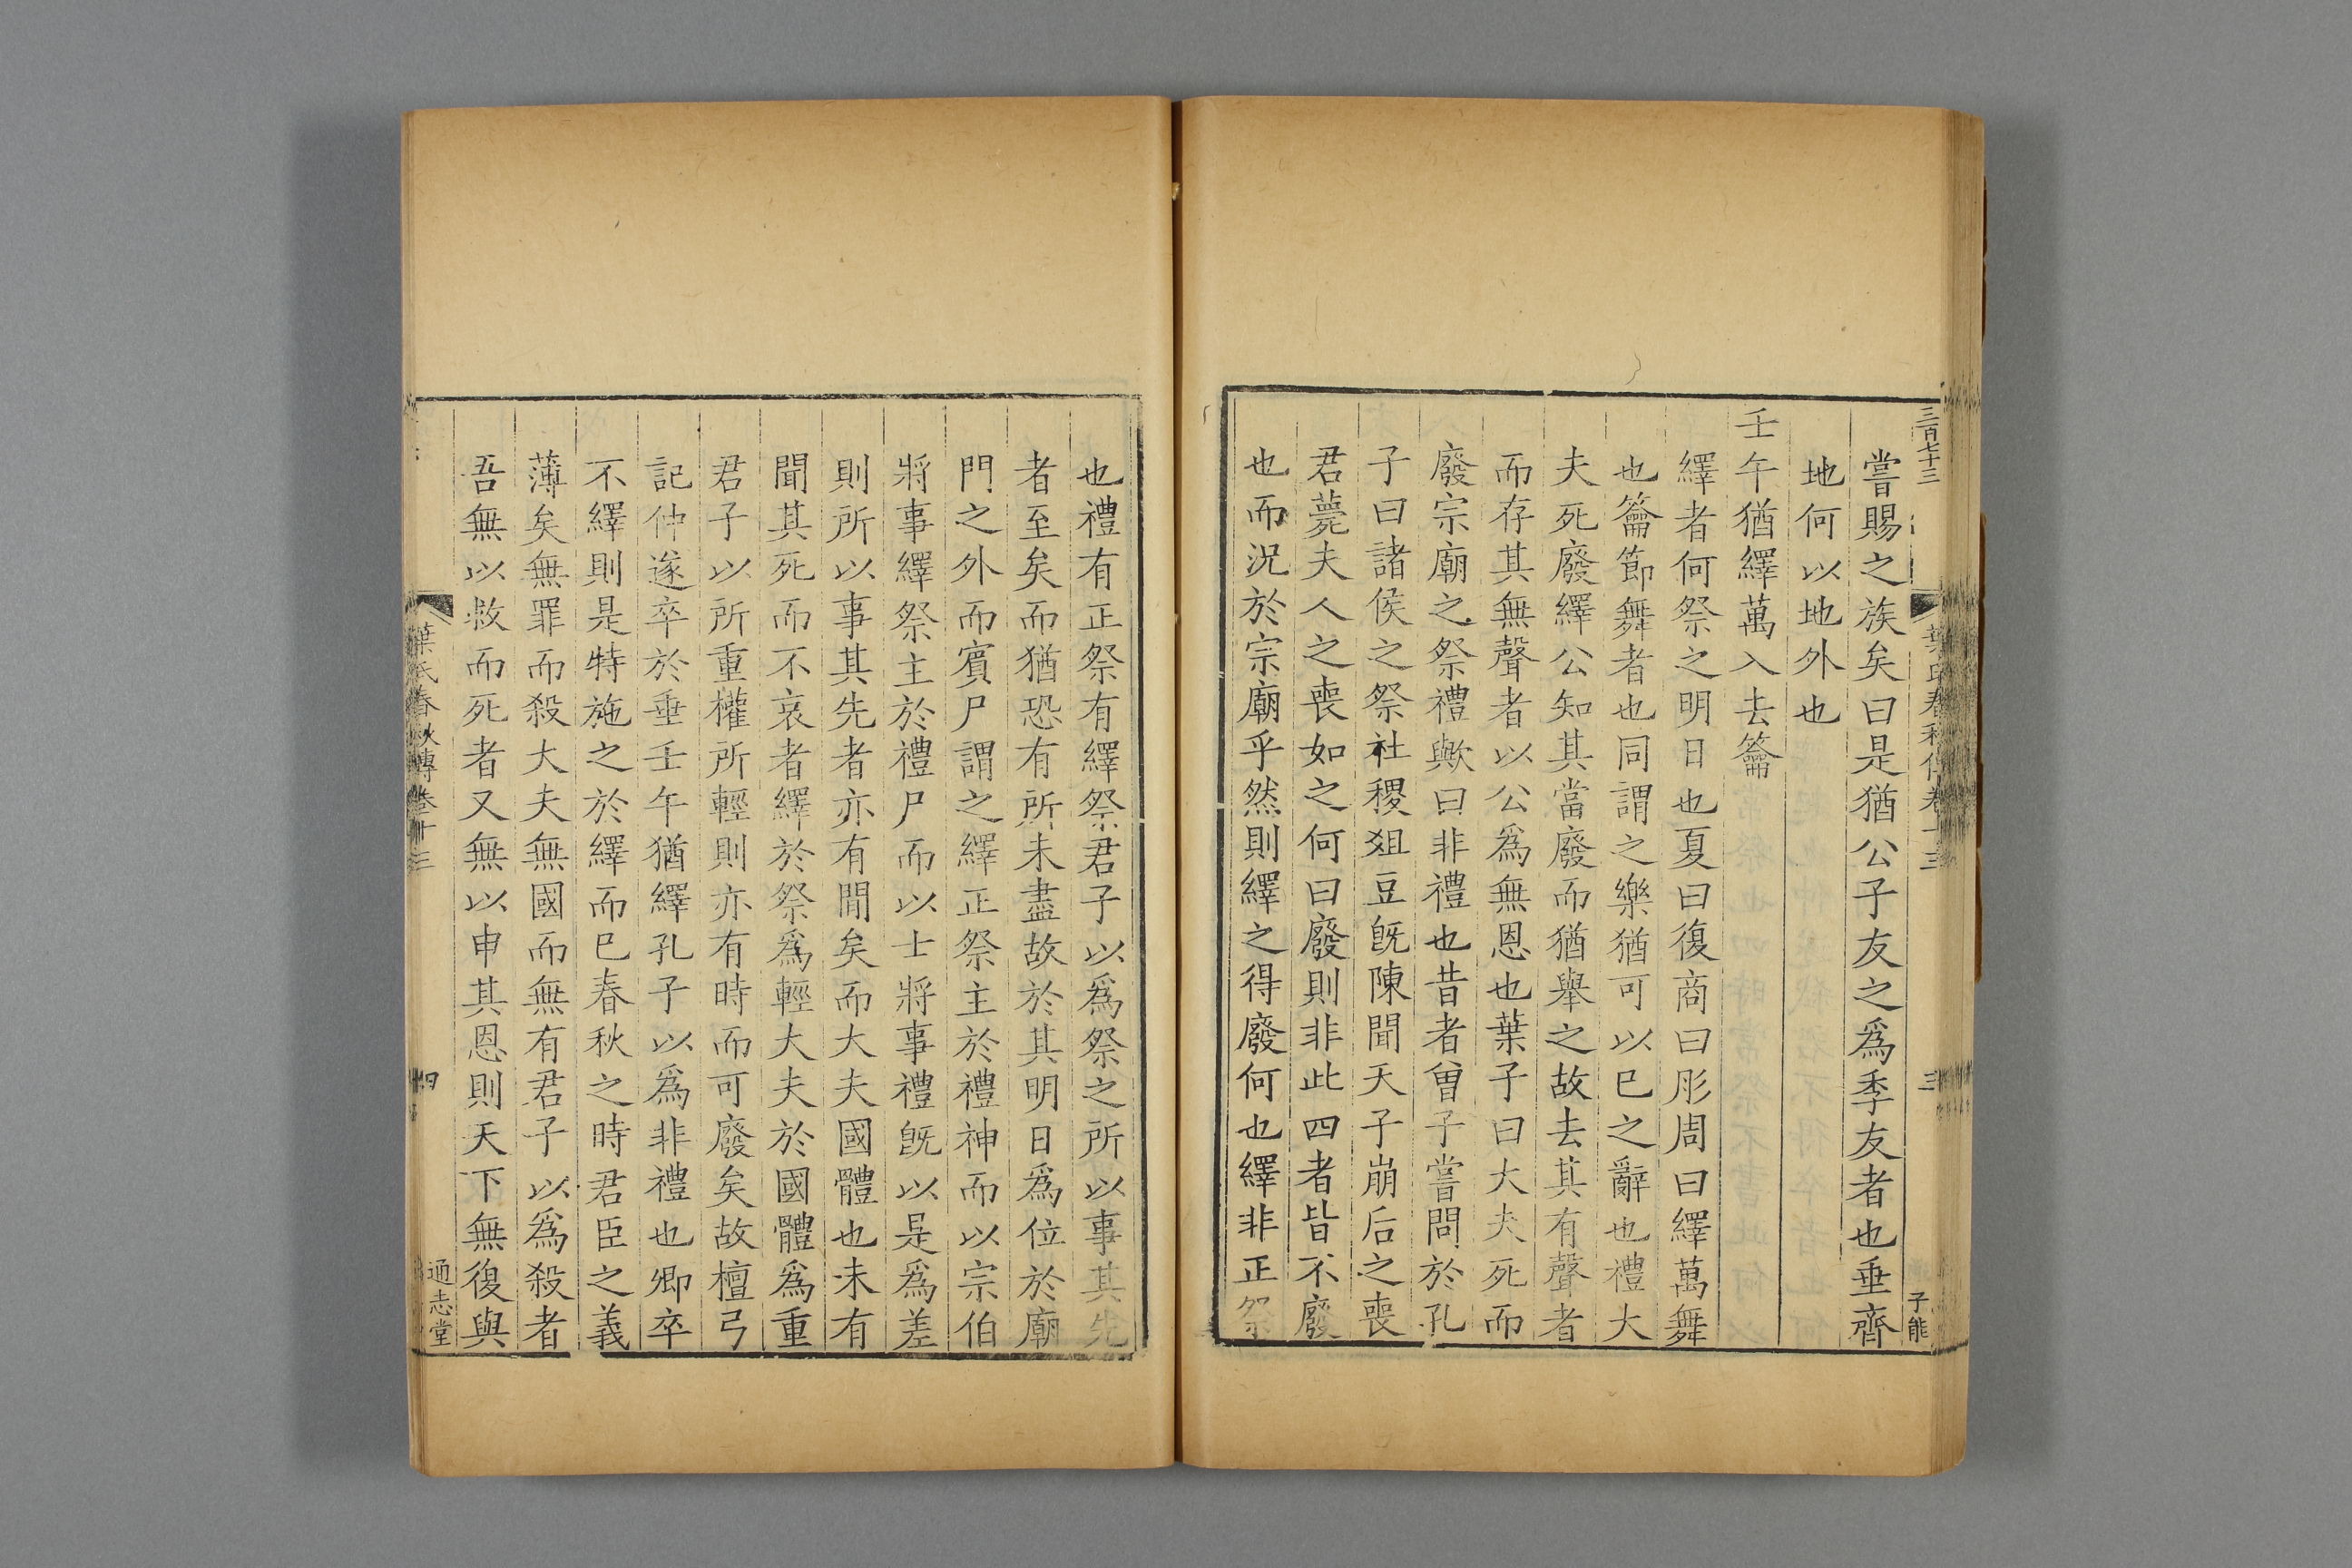 三百七十三
葉氏春秋傳卷十三
三
子能
嘗賜之族矣曰是猶公子友之爲季友者也垂齊
地何以地外也
壬午猶繹萬入去籥
繹者何祭之明日也夏曰復商曰肜周曰繹萬舞
也籥節舞者也同謂之樂猶可以已之辭也禮大
夫死廢繹公知其當廢而猶舉之故去其有聲者
而存其無聲者以公爲無恩也葉子曰大夫死而
廢宗廟之祭禮歟曰非禮也昔者曾子嘗問於孔
子曰諸侯之祭社稷俎豆旣陳聞天子崩后之喪
君薨夫人之喪如之何曰廢則非此四者皆不廢
也而況於宗廟乎然則繹之得廢何也繹非正祭
也禮有正祭有繹祭君子以爲祭之所以事其先
者至矣而猶恐有所未盡故於其明日爲位於廟
門之外而賓尸謂之繹正祭主於禮神而以宗伯
將事繹祭主於禮尸而以士將事禮旣以是爲差
則所以事其先者亦有間矣而大夫國體也未有
聞其死而不哀者繹於祭爲輕大夫於國體爲重
君子以所重權所輕則亦有時而可廢矣故檀弓
記仲遂卒於垂壬午猶繹孔子以爲非禮也卿卒
不繹則是特施之於繹而已春秋之時君臣之義
薄矣無罪而殺大夫無國而無有君子以爲殺者
吾無以救而死者又無以申其恩則天下無復與
葉氏春秋傳卷十三
四
通志堂